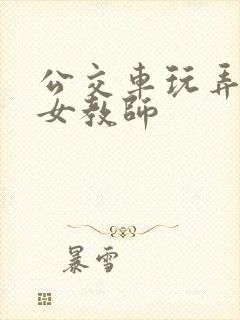 公交車玩弄
女教師
暴雪